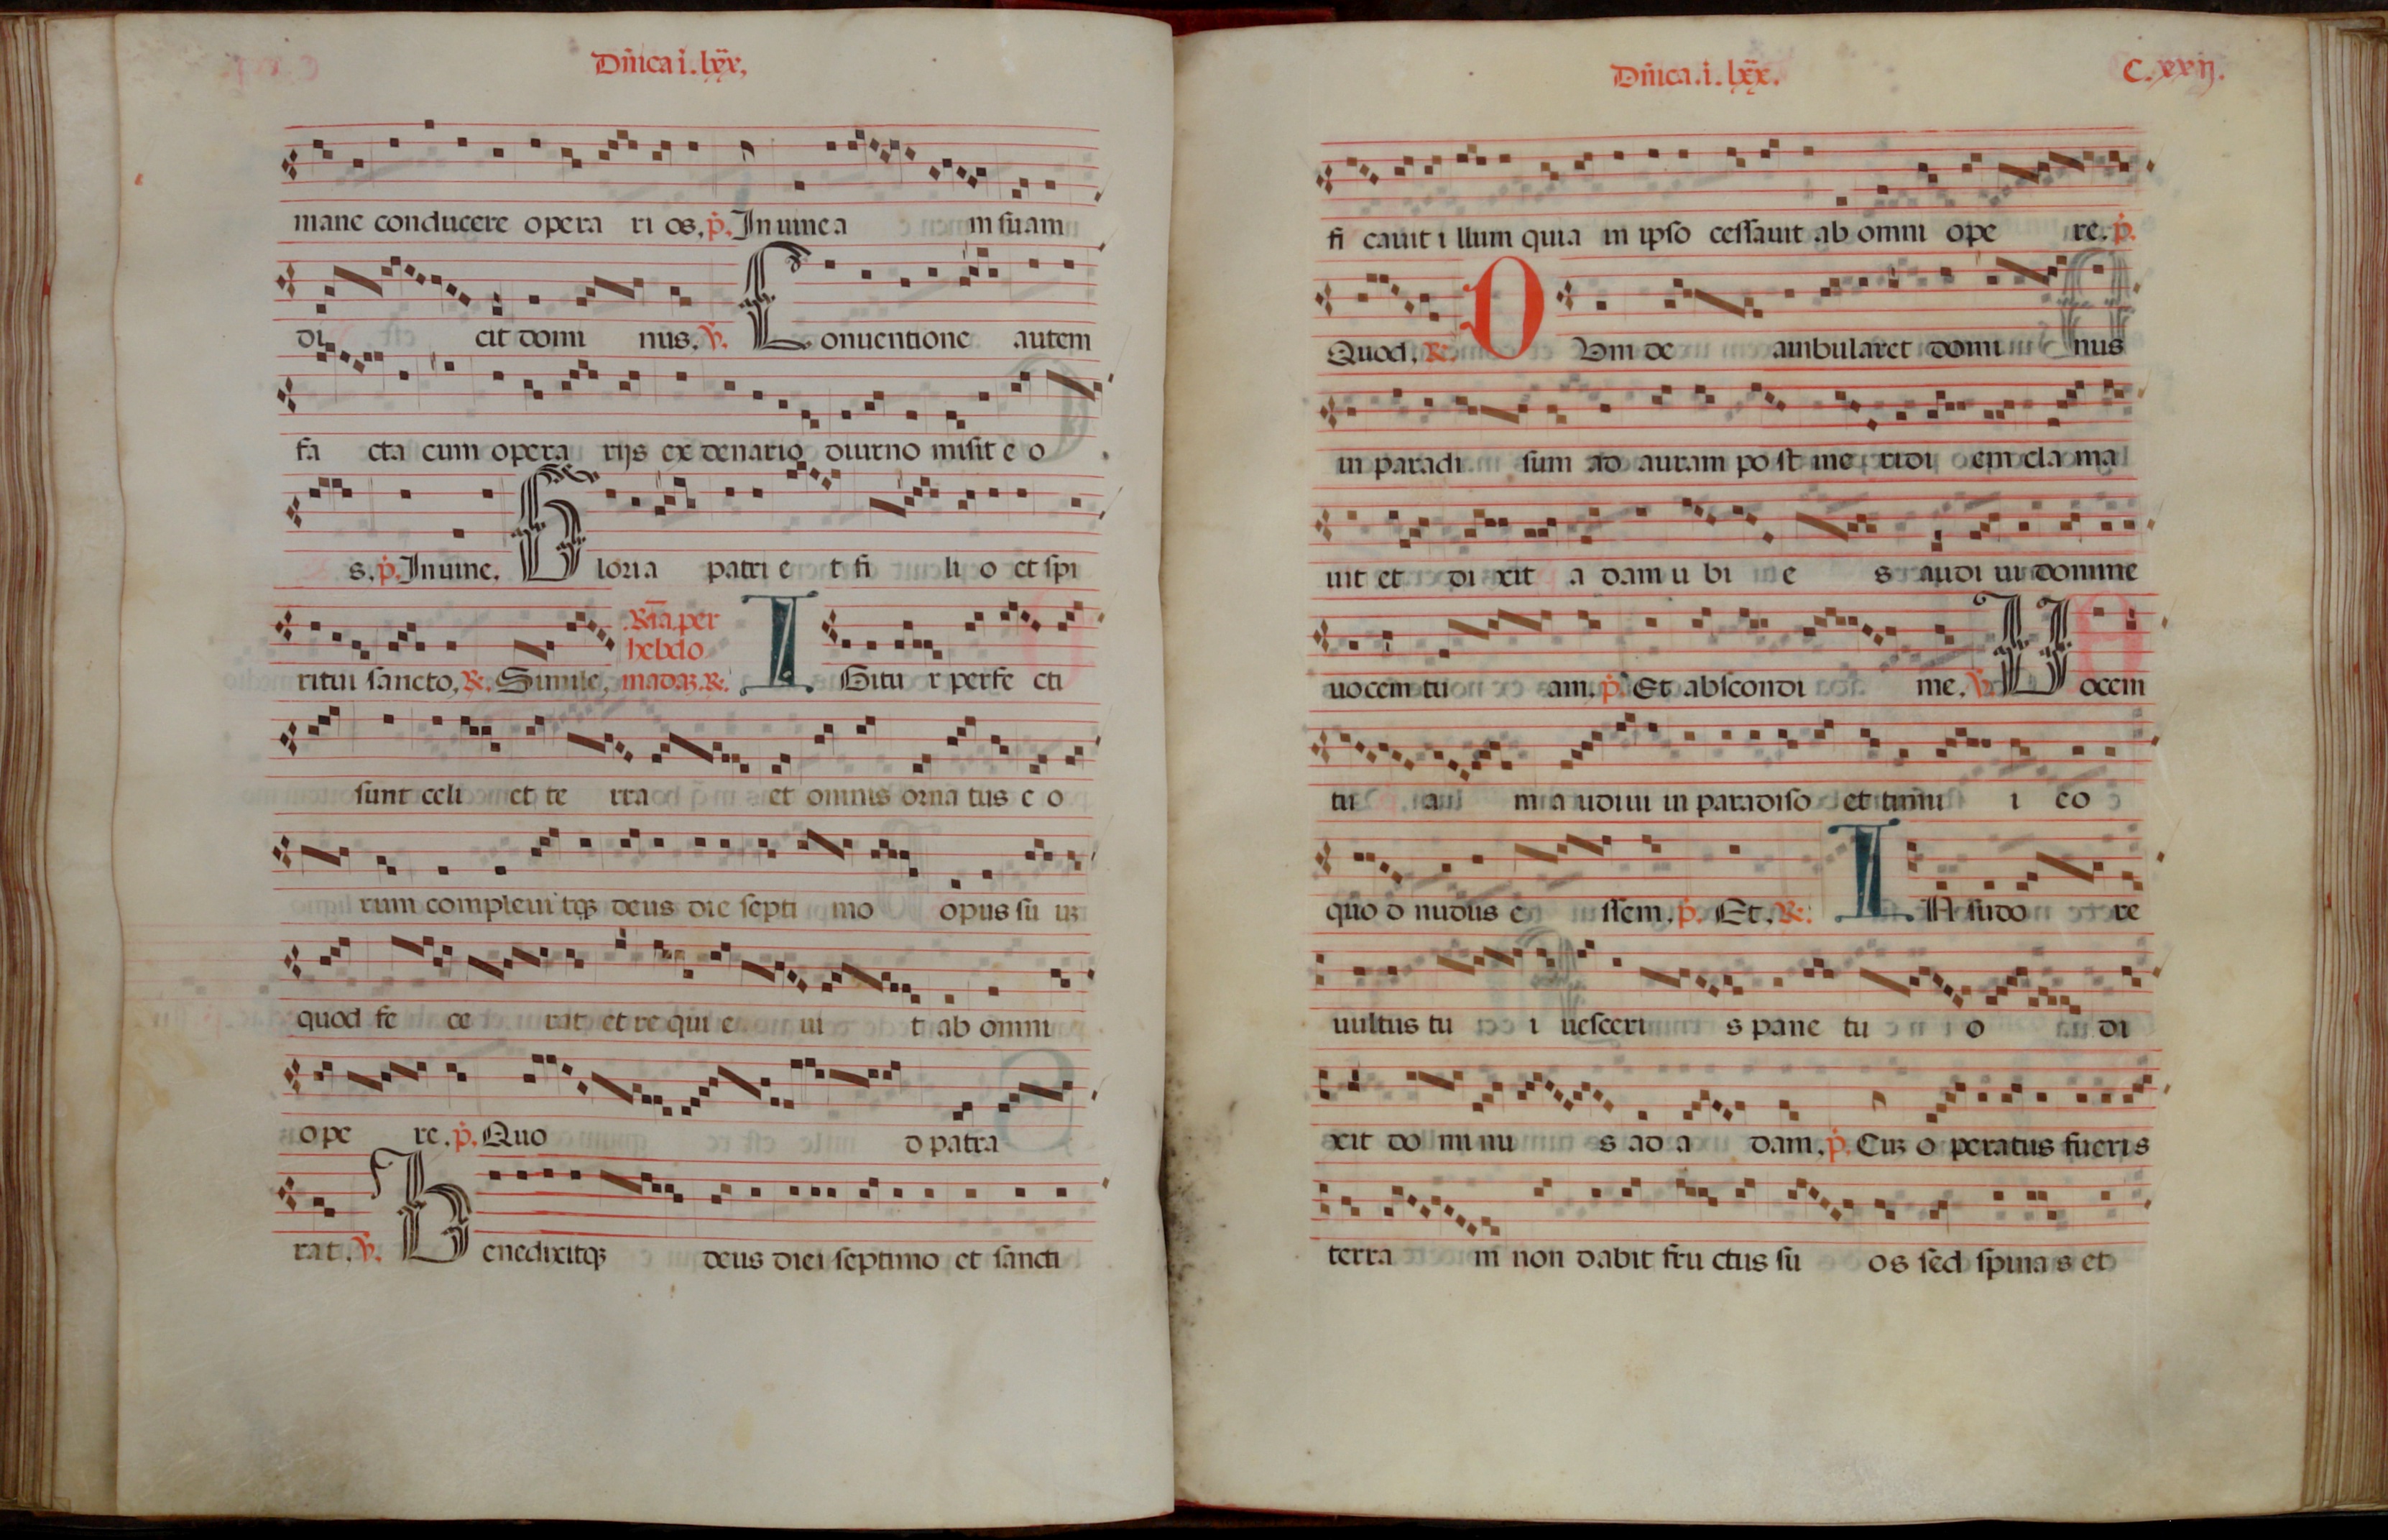 Dñica i. lxx,
mane conducere opera ri os, p. In uinea m suam
di cit domi nus. V. Conuentione autem
fa cta cum opera rijs ex denario diurno misit e o
s. p. In uine. Gloria patri e t fi li o et spi
ritui sancto, R. Simile,
Ria per
hebdo
madaz. R. I Gitu r perfe cti
sunt celi et te rra et omnis orna tus e o
rum compleuitqz deus die septi mo opus su uz
quod fe ce rat et re qui e ui t ab omni
ope re. p. Quo d patra
rat. V. Benedixitqz deus diei septimo et sancti
Dñica. i. lxx.
C. xxij.
fi cauit i llum quia in ipso cessauit ab omni ope re. p.
Quod, R. D Vm de ambularet domi nus
in paradi sum ad auram po st me ridi em cla ma
uit et di xit a dam u bi e s audi ui domine
uocem tu am. p. Et abscondi me, V. Vocem
tu a m a udiui in paradiso et timu i eo
quo d nudus e ssem, p. Et, R. I N sudo re
uultus tu i uesceri s pane tu o di
xit do mi nu s ad a dam, p. Cuz o peratus fueris
terra m non dabit fru ctus su os sed spina s et